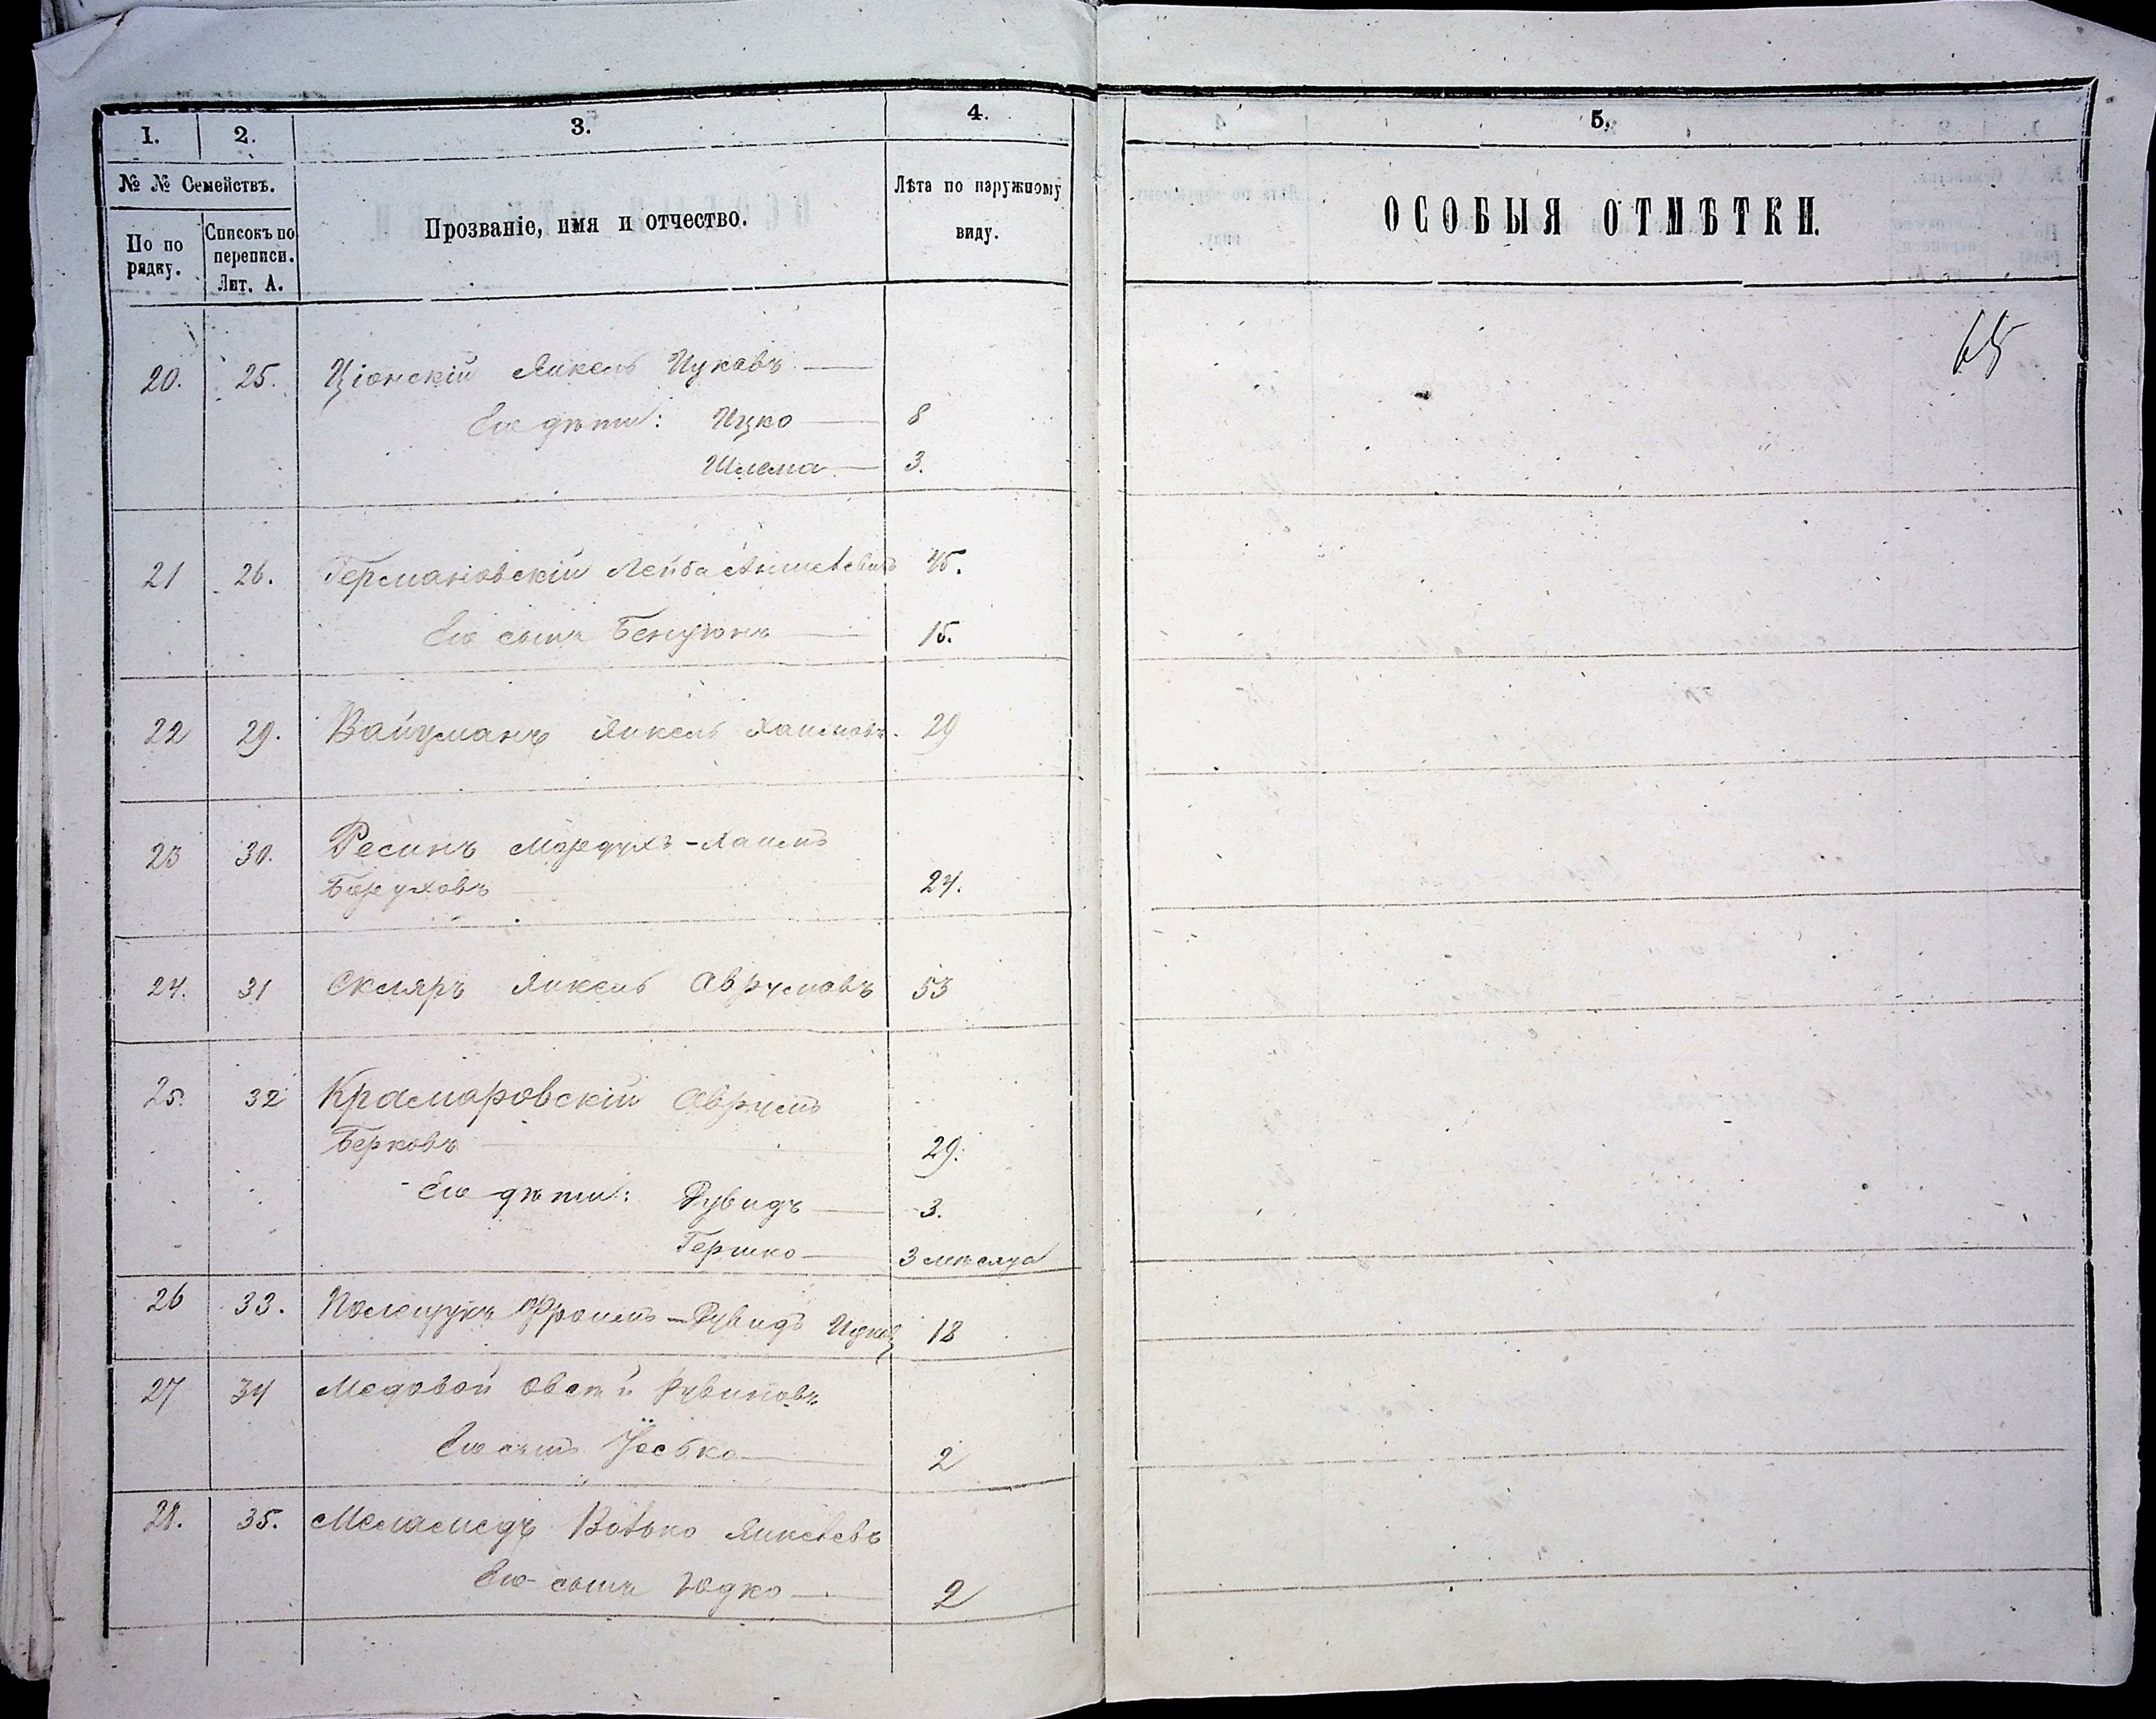 1. 2. 3. 4. 5.
№ № Семействъ.
По по рядку.
Списокъ по переписи. Лит. А.
Прозваніе, имя и отчество.
Лѣта по наружному виду.
ОСОБЫЯ ОТМѢТКИ.
65
20. 25. Ціонскій Янкель Ицковъ
Его дѣти: Ицко 8
Шлема 3.
21 26. Германовскій Лейба Аншелевичъ 45.
Его сынъ Бенціонъ 15.
22 29. Вайцманъ Янкель Хаимовъ. 29
23 30. Ресинъ Мордухъ-Хаимъ
Баруховъ 24.
24. 31 Скляръ Янкель Аврумовъ 53
25. 32 Крамаровскій Аврумъ
Берковъ 29.
Его дѣти: Дувидъ 3.
Гершко 3 мѣсяца
26 33. Полещукъ Фроимъ-Дувидъ Ицков 12
27 34 Медовой Овсѣй Рувиновъ
Его сынъ Іосько 2
28. 35. Меламедъ Волько Янкелевъ
Его сынъ Юдко 2